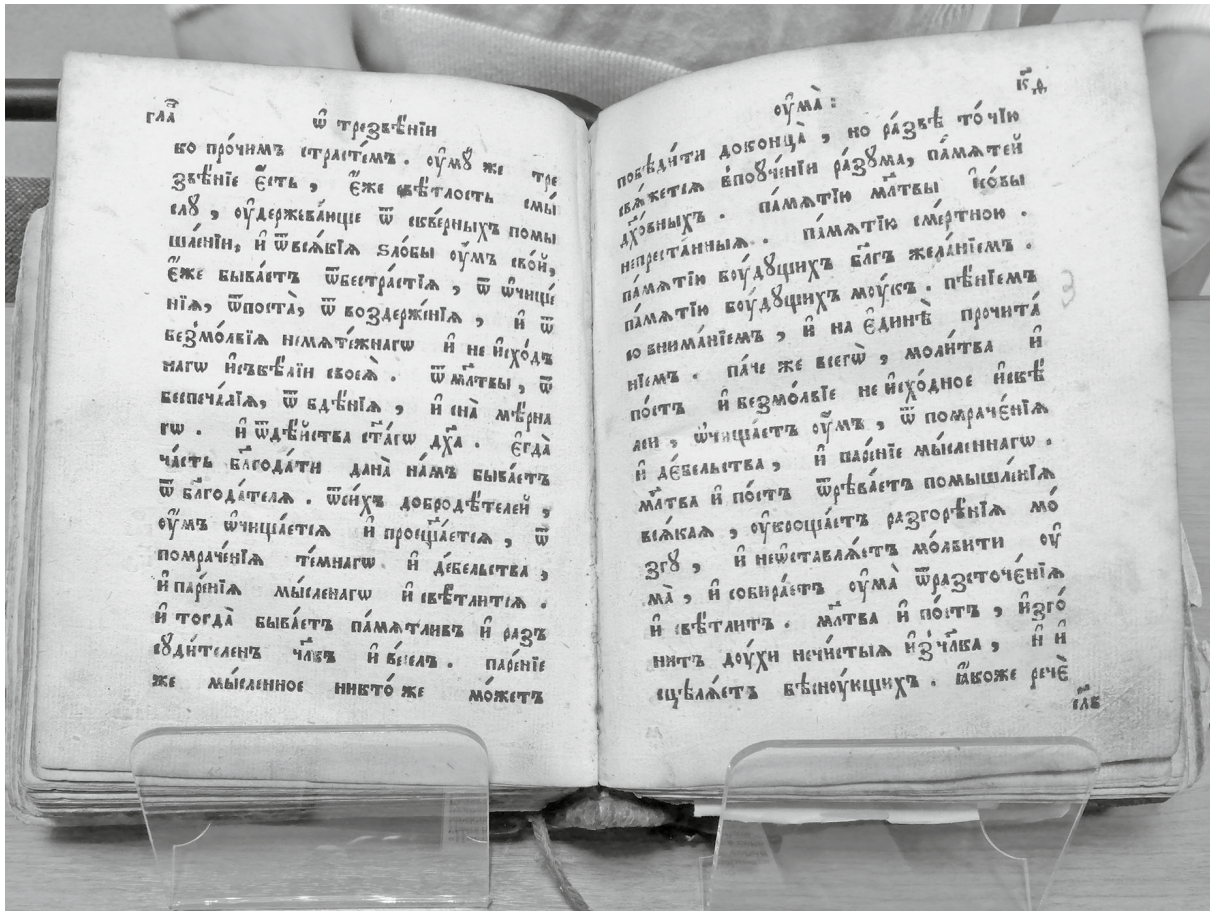 гла҃
ѡ҆ трезвѣ́нїи
ко про́чимъ страсте́мъ . ᲂу҆мꙋ̀ же тре
звѣ́нїе є҆́сть , є҆́же свѣ́тлость смы́
слꙋ , ᲂу҆держева́юще ѿ скве́рныхъ помы
шле́нїи, и҆ ѿвсѧ́кїѧ ѕло́бы ᲂу҆́мъ сво́й,
є҆́же быва́етъ ѿбестра́стїѧ , ѿ ѡ҆чище́
нїѧ, ѿпоста̀, ѿ воздержа́нїѧ , и҆ ѿ
безмо́лвїѧ немѧте́жнагѡ и҆ не и҆схо́дъ
нагѡ и҆скѣ́лїи своеѧ̀ . ѿ мл҃твы , ѿ
беспеча́лїѧ, ѿ бдѣ́нїѧ , и҆ сна̀ мѣ́рна
гѡ . и҆ ѿдѣ́йства ст҃а́гѡ дх҃а . є҆гда̀
ча́сть бл҃года́ти дана̀ на́мъ быва́етъ
ѿ бл҃года́телѧ . ѿси́хъ добродѣ́телей ,
ᲂу҆́мъ ѡ҆чища́етсѧ и҆ просвѣща́етсѧ , ѿ
помраче́нїѧ те́мнагѡ и҆ де́бельства ,
и҆ паре́нїѧ мы́сленагѡ и҆ свѣ́тлитсѧ .
и҆ тогда̀ быва́етъ па́мѧтливъ и҆ разъ
сꙋди́теленъ чл҃въкъ и҆ ве́селъ . паре́нїе
же мы́сленное никто́ же мо́жетъ
ᲂу҆ма̀ :
к҃д
побѣди́ти доконца̀ , но ра́звѣ то́чїю
свѧ́жетсѧ впоꙋче́нїи ра́зꙋма, па́мѧтей
дх҃о́вныхъ . па́мѧтїю мл҃твы і҆со́вы
непреста́нныѧ . па́мѧтїю сме́ртною .
па́мѧтїю боу́дꙋщихъ бл҃гъ жела́нїемъ .
па́мѧтїю боу́дꙋщихъ моу́къ . пѣ́нїемъ
со внима́нїемъ , и҆ на є҆ди́нѣ прочита́
нїемъ . па́че же всегѡ̀ , моли́тва и҆
по́стъ и҆ безмо́лвїе не и҆схо́дное и҆скѣ́
лїи , ѡ҆чища́етъ ᲂу҆́мъ , ѿ помраче́нїѧ
и҆ де́бельства , и҆ паре́нїе мы́сленнагѡ .
мл҃тва и҆ по́стъ ѿрѣва́етъ помышле́нїѧ
всѧ́каѧ , ᲂу҆кроща́етъ разгорѣ́нїѧ мо́
згꙋ , и҆ неѡ҆ставлѧ́етъ мо́лвити ᲂу҆
ма̀ , и҆ собира́етъ ᲂу҆ма̀ ѿразсточе́нїѧ
и҆ свѣ́тлитъ . мл҃тва и҆ по́стъ , и҆зго́
нитъ доу́хи нечи́стыѧ и҆з̾ чл҃вка , и҆ и҆
сцѣлѧ́етъ бѣсноу́ющихъ . ꙗ҆́коже речѐ
сл҃в
3